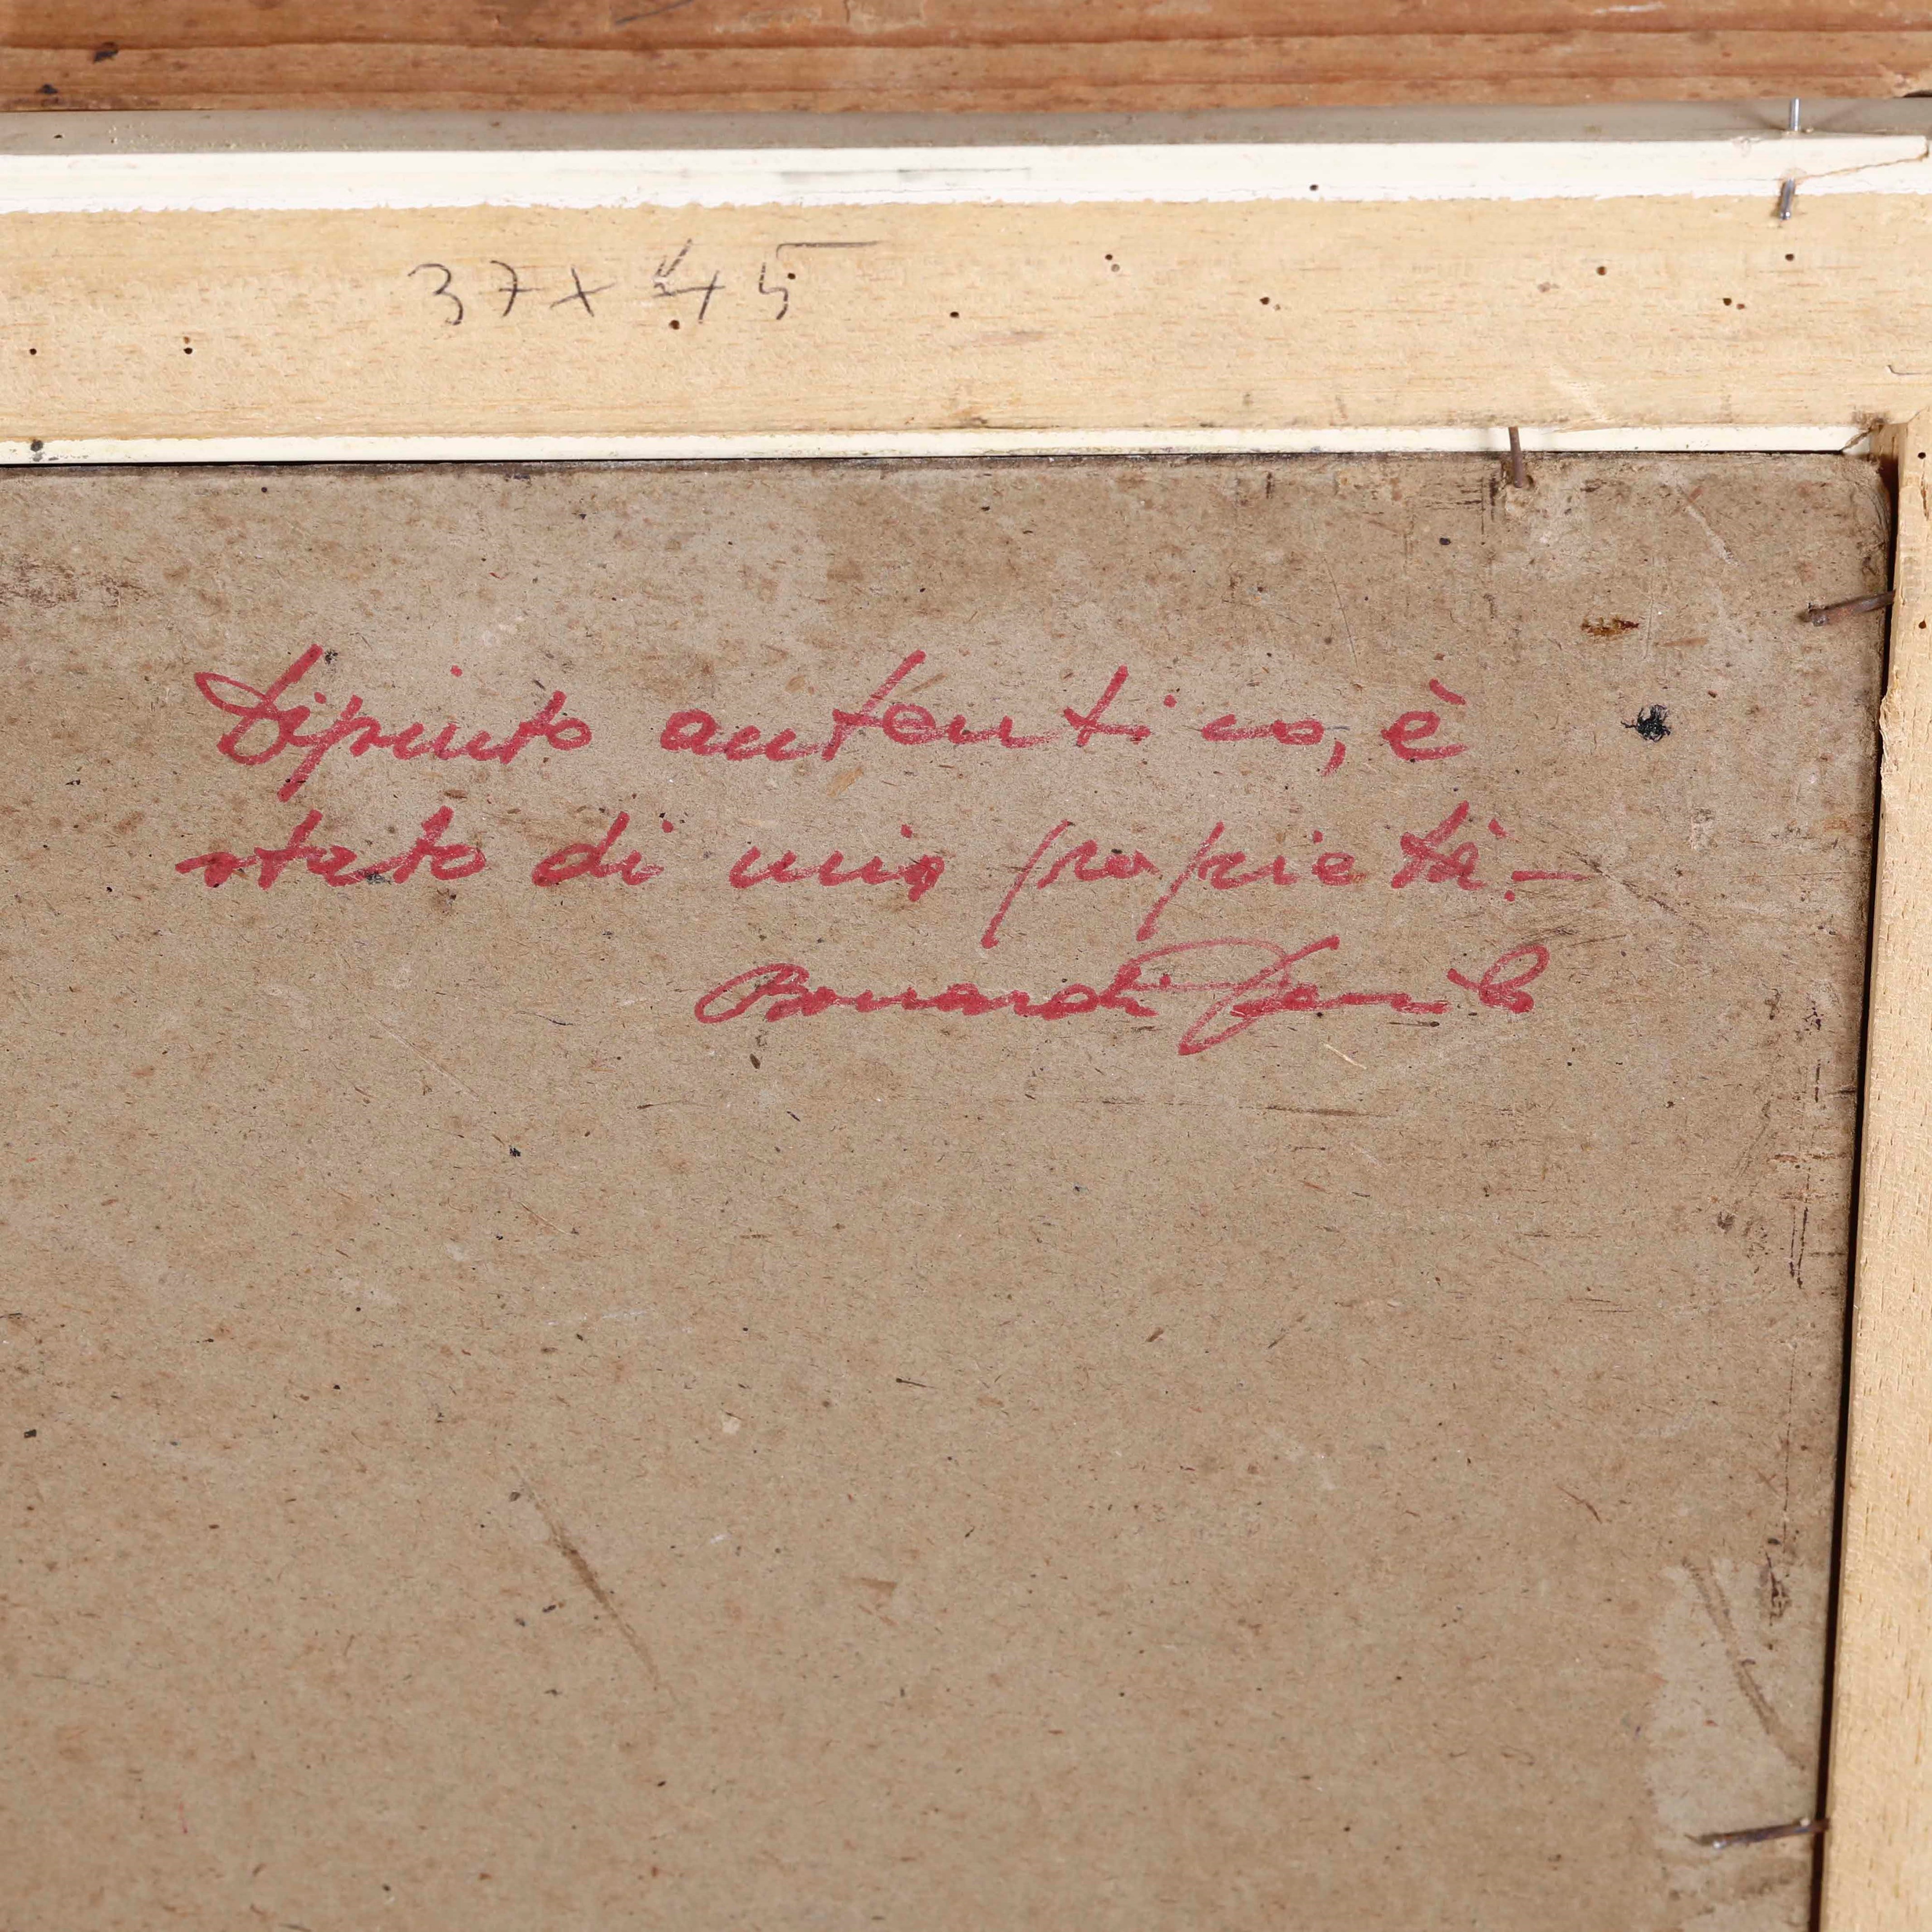 37 x 45
Dipinto autentico, è
stato di mia proprietà.-
Bonardi